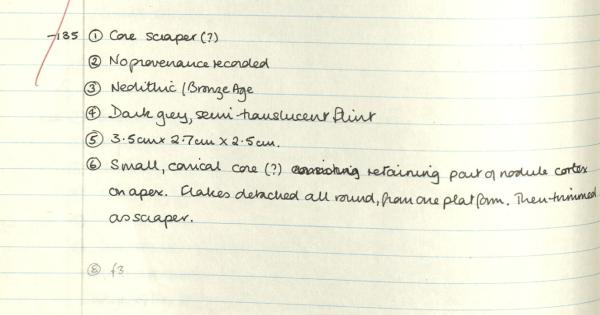 -135 ① Core scraper (?)
② No provenance recorded
③ Neolithic / Bronze Age
④ Dark grey, semi-translucent flint
⑤ 3.5cm x 2.7cm x 2.5cm.
⑥ Small, conical core (?) retaining part of nodule cortex
on apex. Flakes detached all round, from one platform. Then trimmed
as scraper.
⑧ f3